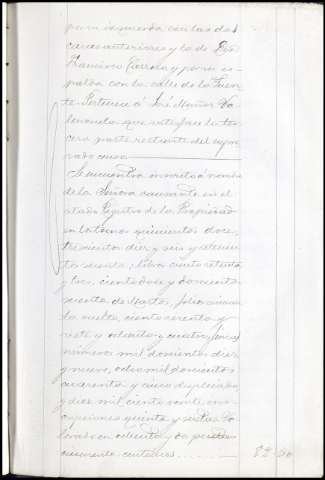 por la izquierda con las dos
casas anteriores y la de Don
Francisco Carrera y por su es-
palda con la calle de la Fuen-
te. Pertenece á José Muñoz Va-
lenzuela que satisface la ter-
cera parte restante del expre-
sado censo
Se encuentra inscrito á nombre
de la Señora causante en el
citado Registro de la Propiedad
en los tomos quinientos doce,
trescientos diez y seis y
libro ciento setenta
y tres, ciento doce y doscientos
sesenta de Martos, folios cincuen-
ta vuelto, ciento sesenta y
siete y ochenta y cuatro, fincas
números mil doscientos diez
y nueve, ocho mil doscientos
cuarenta y cinco duplicado
y diez mil ciento veinte, ins-
cripciones quinta y sextas. Va-
lorado en ochenta y dos pesetas
cincuenta céntimos 82=50